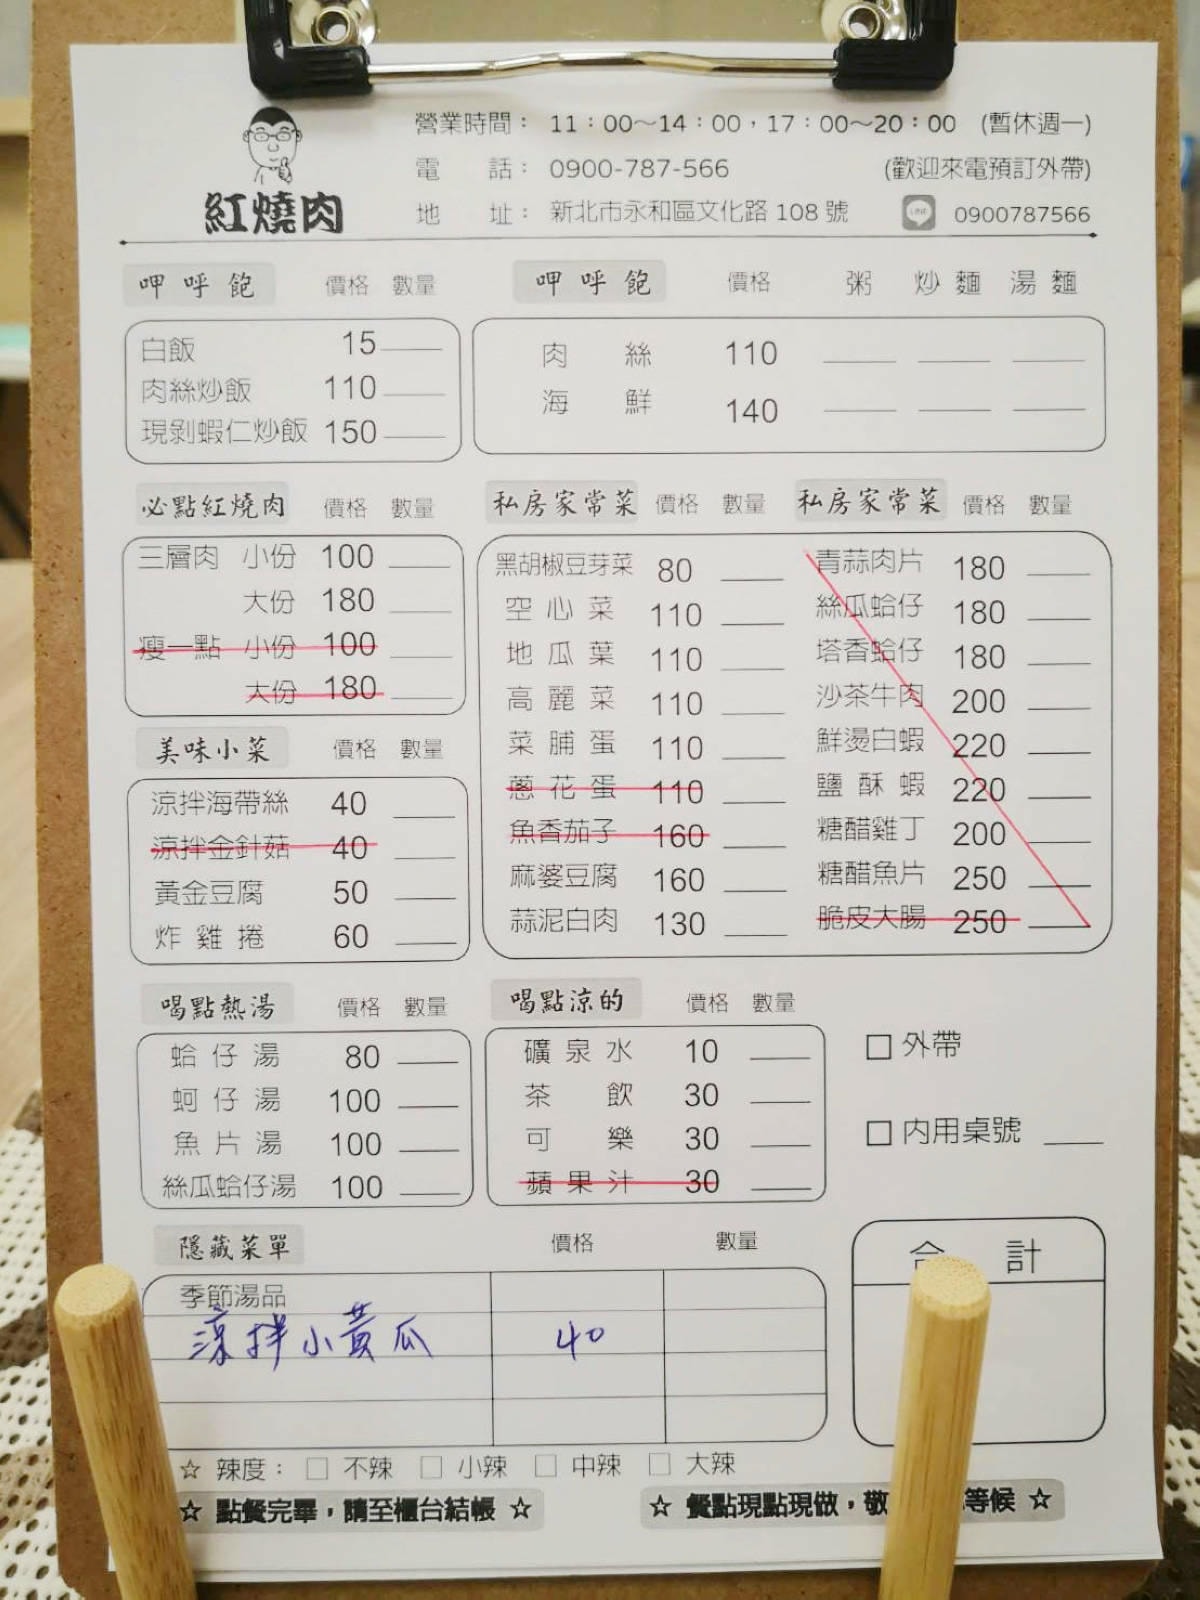 營業時間： 11：00～14：00，17：00～20：00 (暫休週一)
電 話： 0900-787-566 (歡迎來電預訂外帶)
地 址： 新北市永和區文化路 108 號 LINE 0900787566
紅燒肉
呷呼飽 價格 數量
白飯 15
肉絲炒飯 110
現剝蝦仁炒飯 150
呷呼飽 價格 粥 炒麵 湯麵
肉絲 110
海鮮 140
必點紅燒肉 價格 數量
三層肉 小份 100
大份 180
瘦一點 小份 100
大份 180
美味小菜 價格 數量
涼拌海帶絲 40
涼拌金針菇 40
黃金豆腐 50
炸雞捲 60
私房家常菜 價格 數量
黑胡椒豆芽菜 80
空心菜 110
地瓜葉 110
高麗菜 110
菜脯蛋 110
蔥花蛋 110
魚香茄子 160
麻婆豆腐 160
蒜泥白肉 130
私房家常菜 價格 數量
青蒜肉片 180
絲瓜蛤仔 180
塔香蛤仔 180
沙茶牛肉 200
鮮燙白蝦 220
鹽酥蝦 220
糖醋雞丁 200
糖醋魚片 250
脆皮大腸 250
喝點熱湯 價格 數量
蛤仔湯 80
蚵仔湯 100
魚片湯 100
絲瓜蛤仔湯 100
喝點涼的 價格 數量
礦泉水 10
茶飲 30
可樂 30
蘋果汁 30
□ 外帶
□ 內用桌號
隱藏菜單 價格 數量
季節湯品
涼拌小黃瓜 40
合計
☆ 辣度： □ 不辣 □ 小辣 □ 中辣 □ 大辣
☆ 點餐完畢，請至櫃台結帳 ☆
☆ 餐點現點現做，敬 等候 ☆